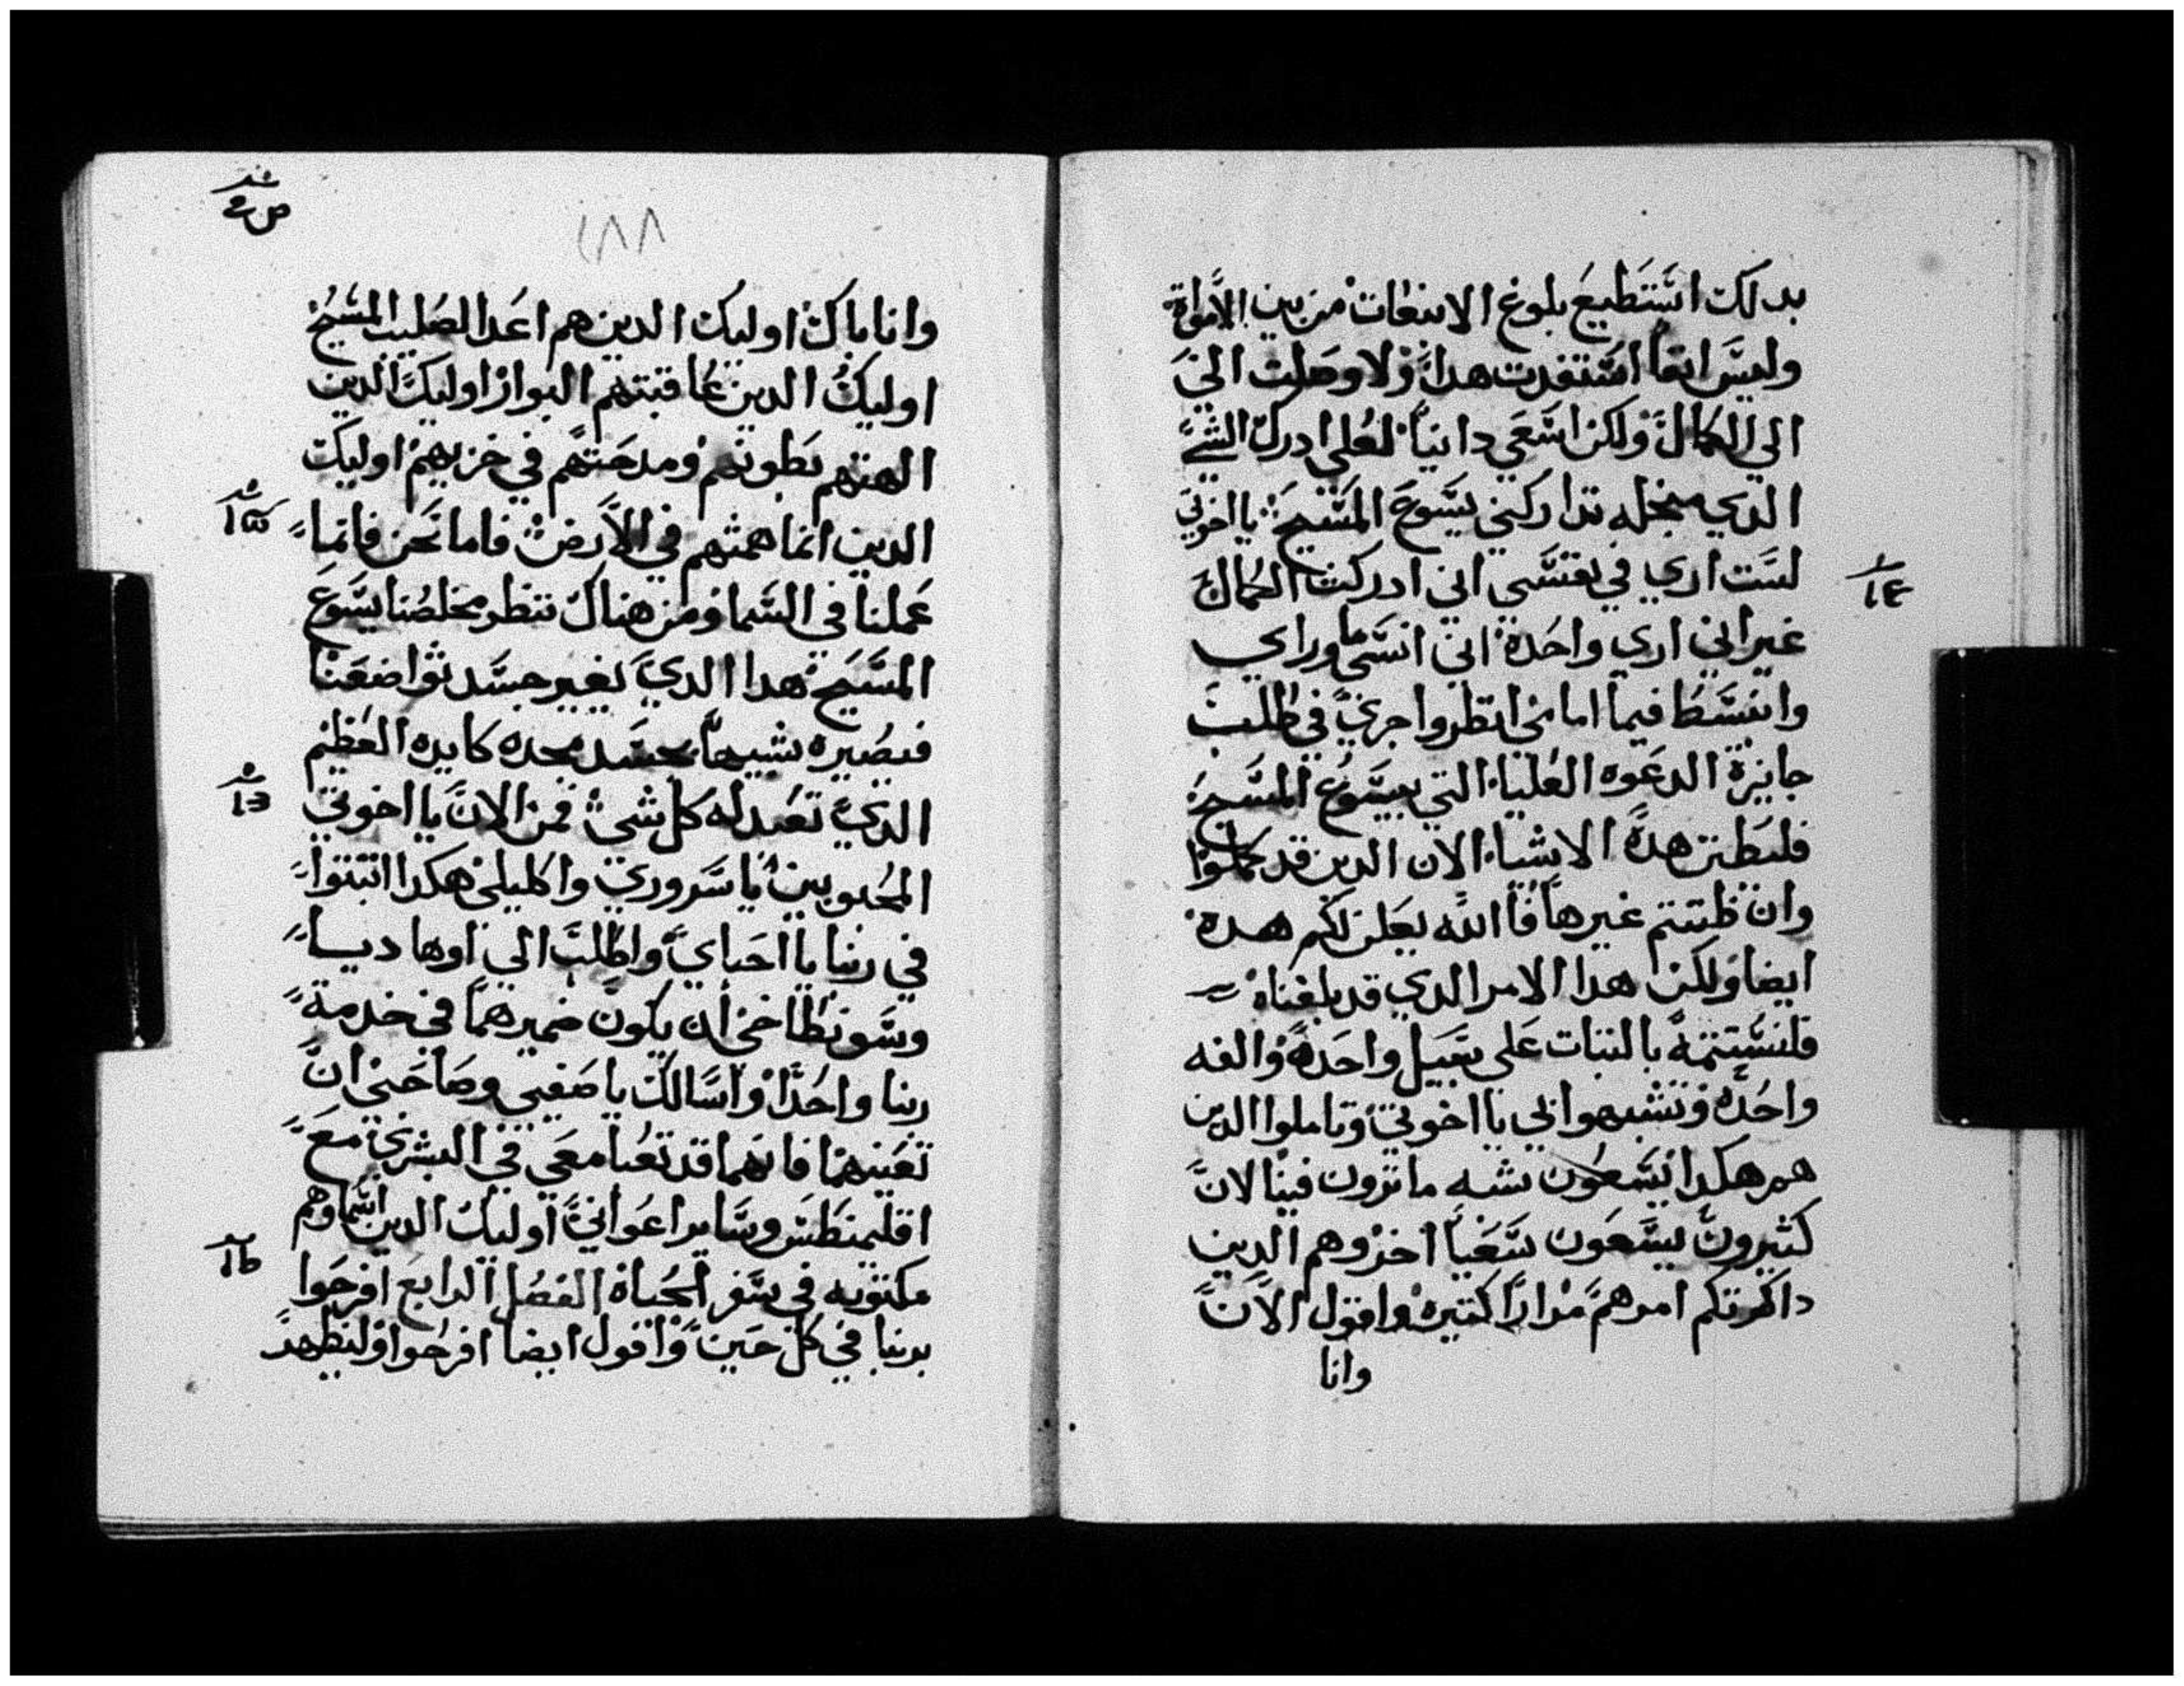 بدلك استطيع بلوغ الانبعات من بين الاموات
وليس انما استفدت هدا ولا وصلت الي
الي الكمال ولكن اسعي دانيا لعلي ادرك الشي
الدي من اجله تداركني يسوع المسيح يا اخوتي
لست اري في نفسي اني ادركت الكمال
غير اني اري واحدة اني انسي ما وراي
وانبسط فيما امامي انظر واجري في طلب
جايزة الدعوه العليا التي بيسوع المسيح
فليظن هده الاشياء الان الدين قد كملوا
وان ظننتم غيرها فا الله يعلن لكم هده
ايضا ولكن هدا الامر الدي قد بلغناه
فلنستتمه بالتبات علي سبيل واحده والفه
واحده وتشبهوا بي يا اخوتي وتاملوا الدين
هم هكدا يسعون شبه ما ترون فينا لان
كثيرون يسعون سعيا اخر وهم الدين
داكرتكم امرهم مرارا كتيره واقول الان
وانا
١٤
ص٩
١٨٨
وانا باك اوليك الدين هم اعدا لصليب المسيح
اوليك الدين عاقبتهم البوار اوليك الدين
الهتهم بطونهم ومدحتهم في خزيهم اوليك
الدين انما همتهم في الارض فاما نحن فانما
عملنا في السما ومن هناك ننظر مخلصنا يسوع
المسيح هدا الدي يغير جسد تواضعنا
فيصيره شبيها بجسد مجده كايده العظيم
الدي تعبد له كل شي فمن الان يا اخوتي
المحبوبين يا سروري واكليلي هكدا اتبتوا
في ربنا يا احباي واطلب الي اوهاديا
وسونطاخي ان يكون ضميرهما في خدمة
ربنا واحدا واسالك يا صفيي وصاحبي ان
تعينهما فانهما قد تعبا معي في البشري مع
اقليمنطس وساير اعواني اوليك الدين اسماوهم
مكتوبه في سفر الحياة الفصل الرابع افرحوا
بربنا في كل حين واقول ايضا افرحوا وليظهر